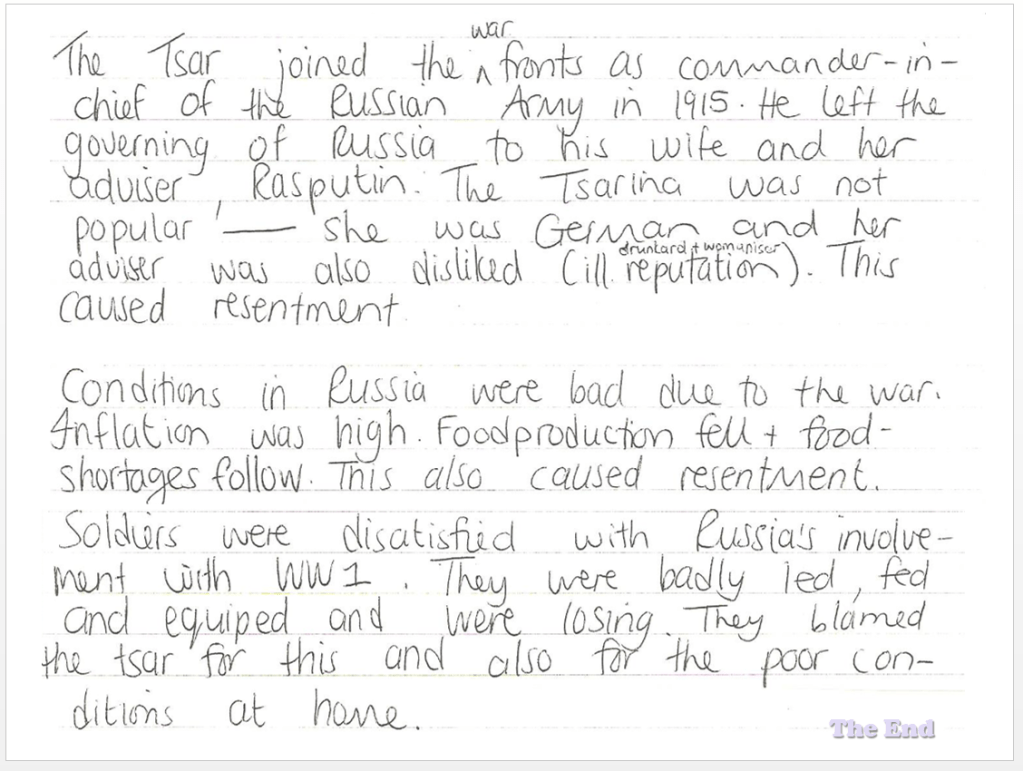 The Tsar joined the war fronts as commander-in-
chief of the Russian Army in 1915. He left the
governing of Russia to his wife and her
adviser, Rasputin. The Tsarina was not
popular — she was German and her
adviser was also disliked (ill. reputation). This
drunkard + womaniser
caused resentment.
Conditions in Russia were bad due to the war.
Inflation was high. Foodproduction fell + food-
shortages follow. This also caused resentment.
Soldiers were disatisfied with Russia's involve-
ment with WW1. They were badly led, fed
and equiped and were losing. They blamed
the tsar for this and also for the poor con-
ditions at home.
The End